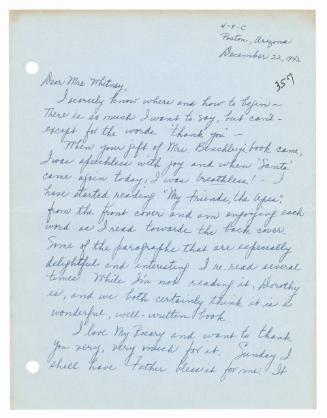 4-9-C
Poston, Arizona
December 22, 1942
357
Dear Mrs Whitney,
I scarcely know where and how to begin—
There is so much I want to say, but cant—
except for the words 'thank you'—
When your gift of Mrs Benchley's book came,
I was speechless with joy and when 'Santa'
came again today, I was breathless! — I
have started reading "My Friends, the Apes"
from the front cover and am enjoying each
word as I read towards the back cover.
Some of the paragraphs that are especially
delightful and interesting I re-read several
times. While I'm not reading it, Dorothy
is, and we both certainly think it is a
wonderful, well-written book
I love My Rosary and want to thank
you very, very much for it. Sunday I
shall have Father bless it for me. It